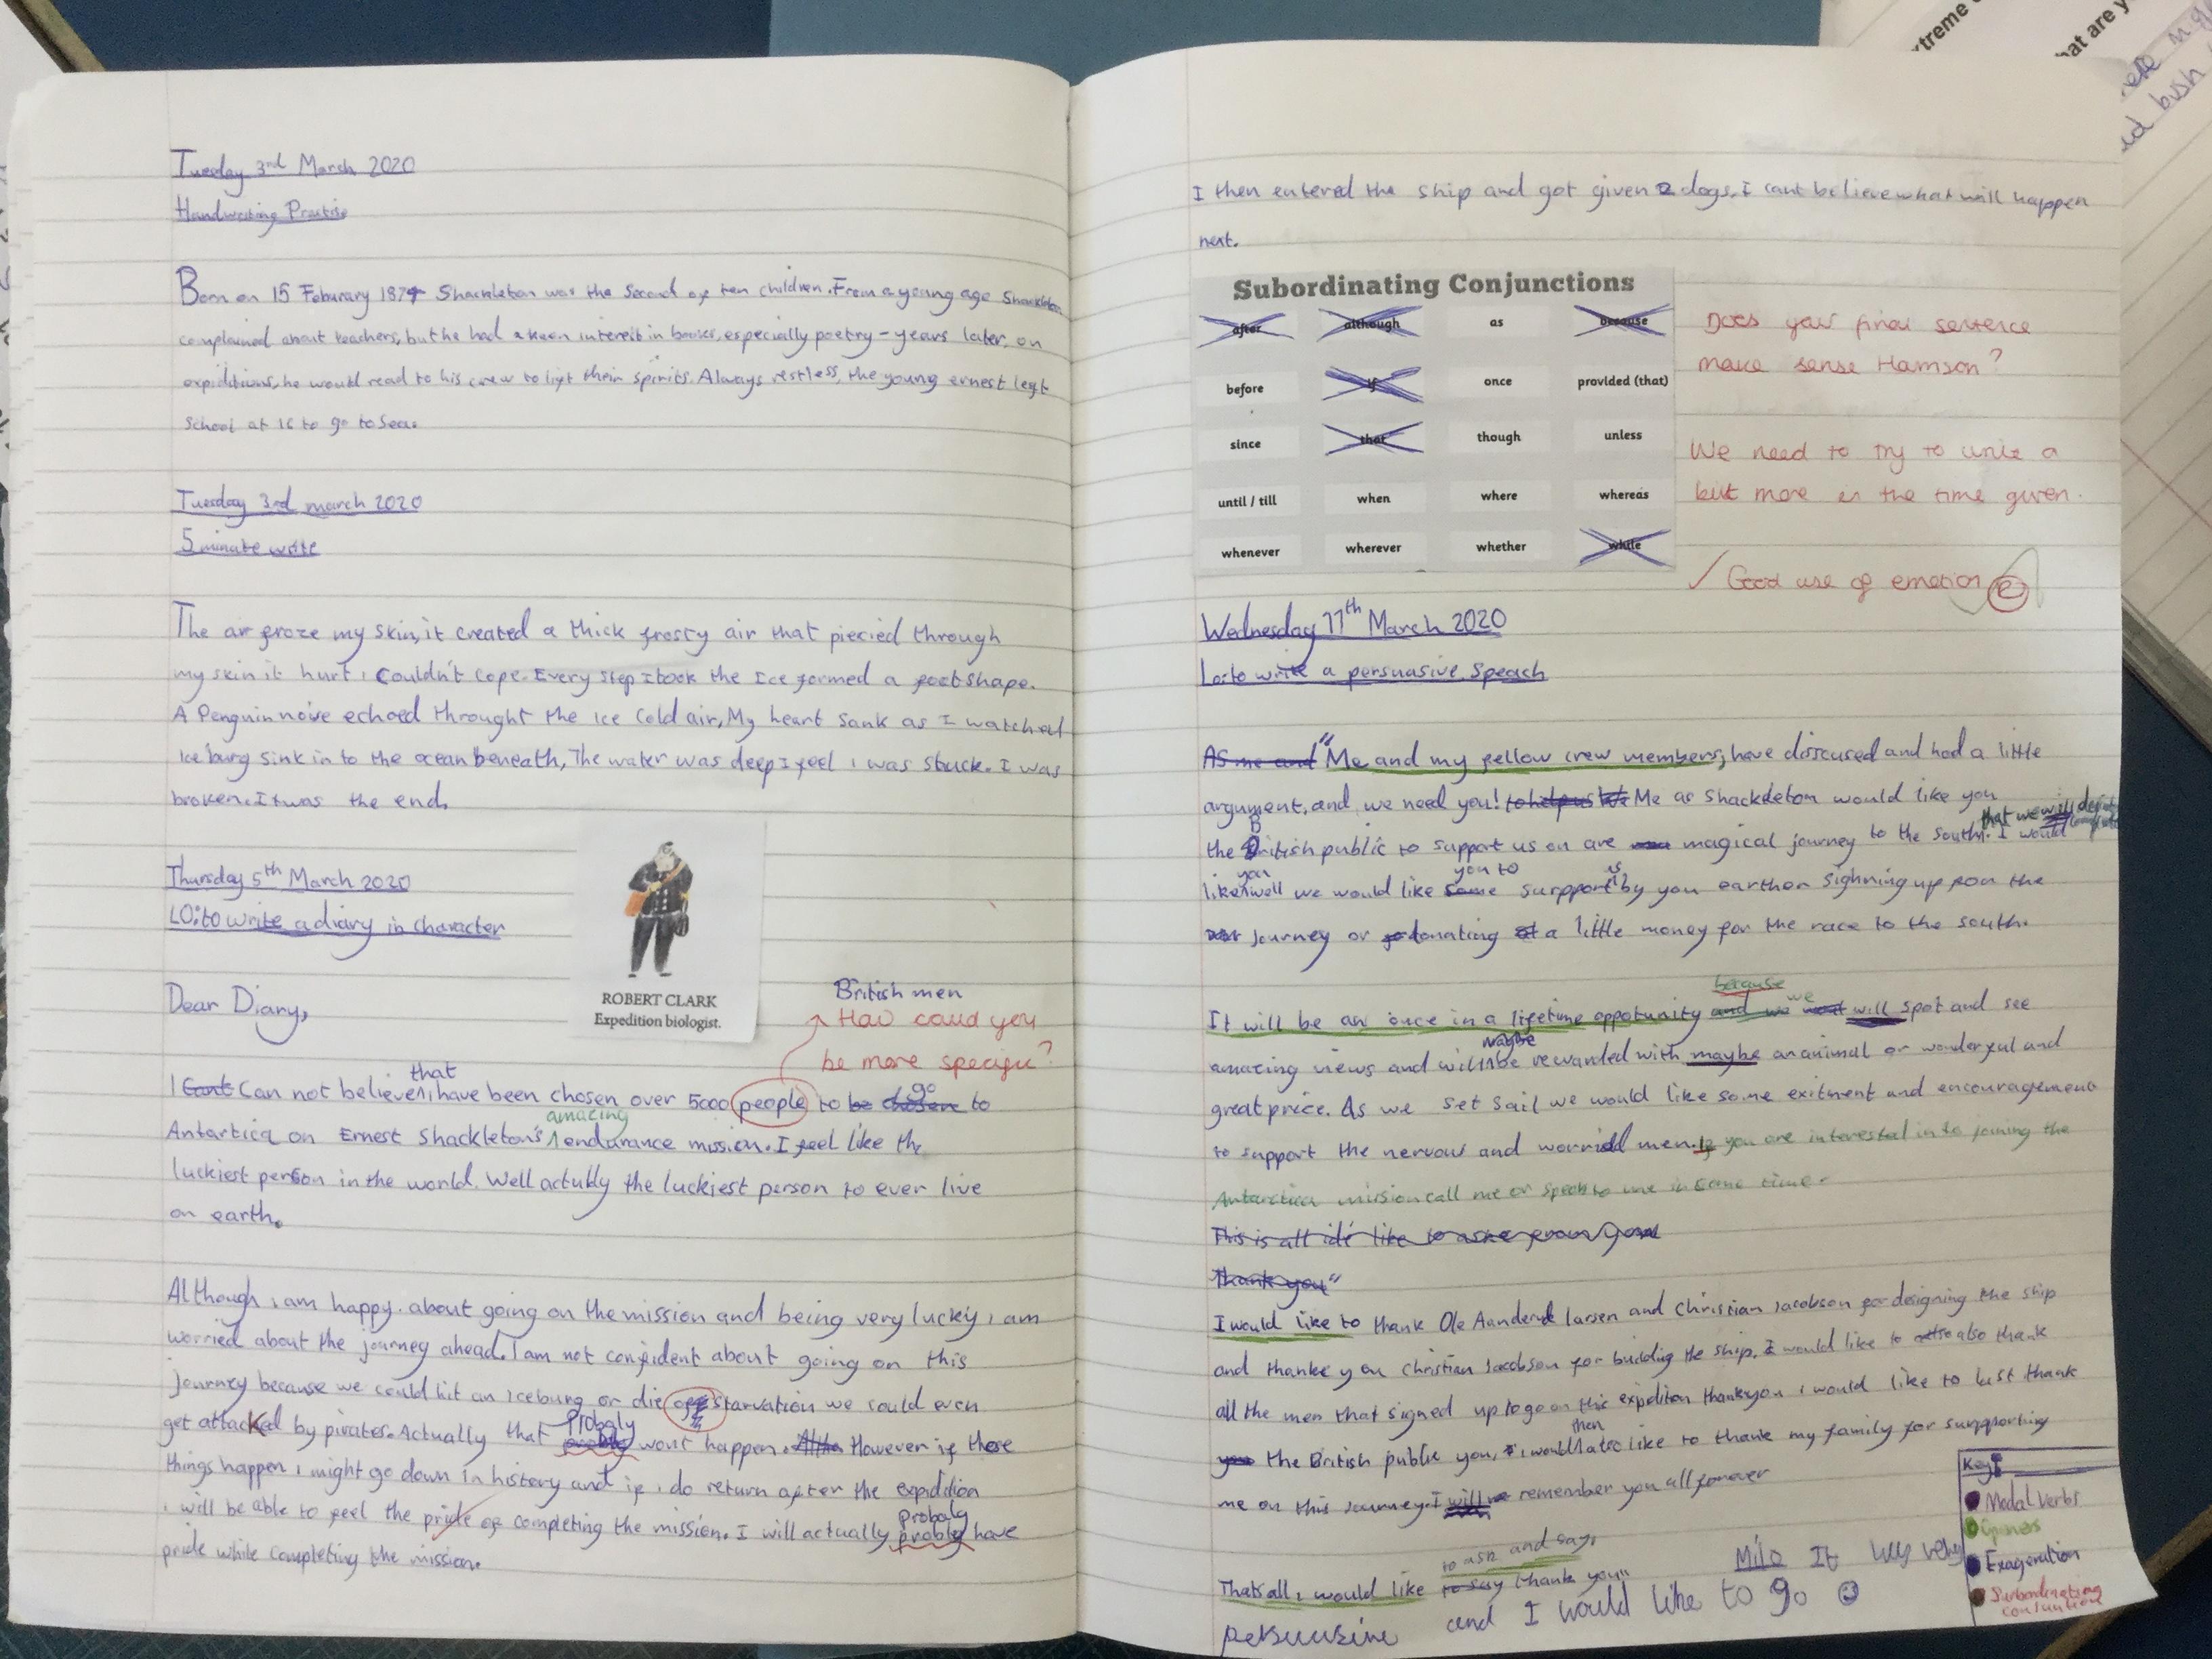 Tuesday 3rd March 2020
Handwriting Practise
Born on 15 Feburary 1874 Shackleton was the Second of ten children. From a young age Shackleton
complained about teachers, but he had a keen interest in books, especially poetry - years later, on
expiditions, he would read to his crew to lift their spirits. Always restless, the young ernest left
School at 16 to go to Sea.
Tuesday 3rd march 2020
5 minute write
The air froze my skin, it created a thick frosty air that piecied through
my skin it hurt i couldn't cope. Every step I took the Ice formed a foot shape.
A Penguin noise echoed throught the Ice Cold air, My heart Sank as I watched
Ice burg Sink in to the ocean beneath, The water was deep I feel i was stuck. I was
broken. It was the end.
Thursday 5th March 2020
LO: to write a diary in character
ROBERT CLARK
Expedition biologist.
Dear Diary,
British men
How could you
be more specific?
that
I Cant Can not believe i have been chosen over 5000 people to be chosen go to
amazing
Antartica on Ernest Shackleton's endurance mission. I feel like the
luckiest person in the world. Well actubly the luckiest person to ever live
on earth.
Although i am happy about going on the mission and being very lucky i am
worried about the journey ahead. I am not confident about going on this
journey because we could hit an iceburg or die of starvation we could even
get attacked by pirates. Actually that Probaly wont happen. However if those
things happen i might go down in history and if i do return after the expidition
i will be able to feel the pride of completing the mission. I will actually probaly have
pride while completing the mission.
I then entered the ship and got given 2 dogs. I cant believe what will happen
next.
Subordinating Conjunctions
after although as because
before if once provided (that)
since that though unless
until / till when where whereas
whenever wherever whether while
Does your final sentence
make sense Harrison?
We need to try to write a
bit more in the time given.
✓ Good use of emotion
Wednesday 11th March 2020
Lo: to write a persuasive Speach
As me and "Me and my fellow crew members, have disscused and had a little
argument, and we need you! to help us Me as Shackleton would like you
the British public to support us on are magical journey to the south. I would
that we will
you you to us
like well we would like some surpport by you earther sighning up foor the
journey or donating a little money for the race to the south.
because
It will be an once in a lifetime oppotunity and we will spot and see
maybe
amazing views and will be rewarded with maybe an animal or wonderful and
great price. As we set Sail we would like some exitment and encouragement
to support the nervous and worried men. If you are interested in to joining the
Antarctica mission call me or speak to me in some time.
This is all id like to aske from you
Thank you"
I would like to thank Ole Aanderud larsen and Christian Jacobson for designing the ship
and thanke you Christian Jacobson for building the ship. I would like to also thank
all the men that signed up to go on this expidition thankyou i would like to last thank
then
you the British public you, i would also like to thank my family for surpporting
me on this Journey. I will remember you all forever
to ask and say,
Thats all i would like to say thank you"
Milo It was very
persuasive and I would like to go
Key
Modal Verbs
Openers
Exageration
Subordinating
conjuntions
xtreme
hat are y
bush